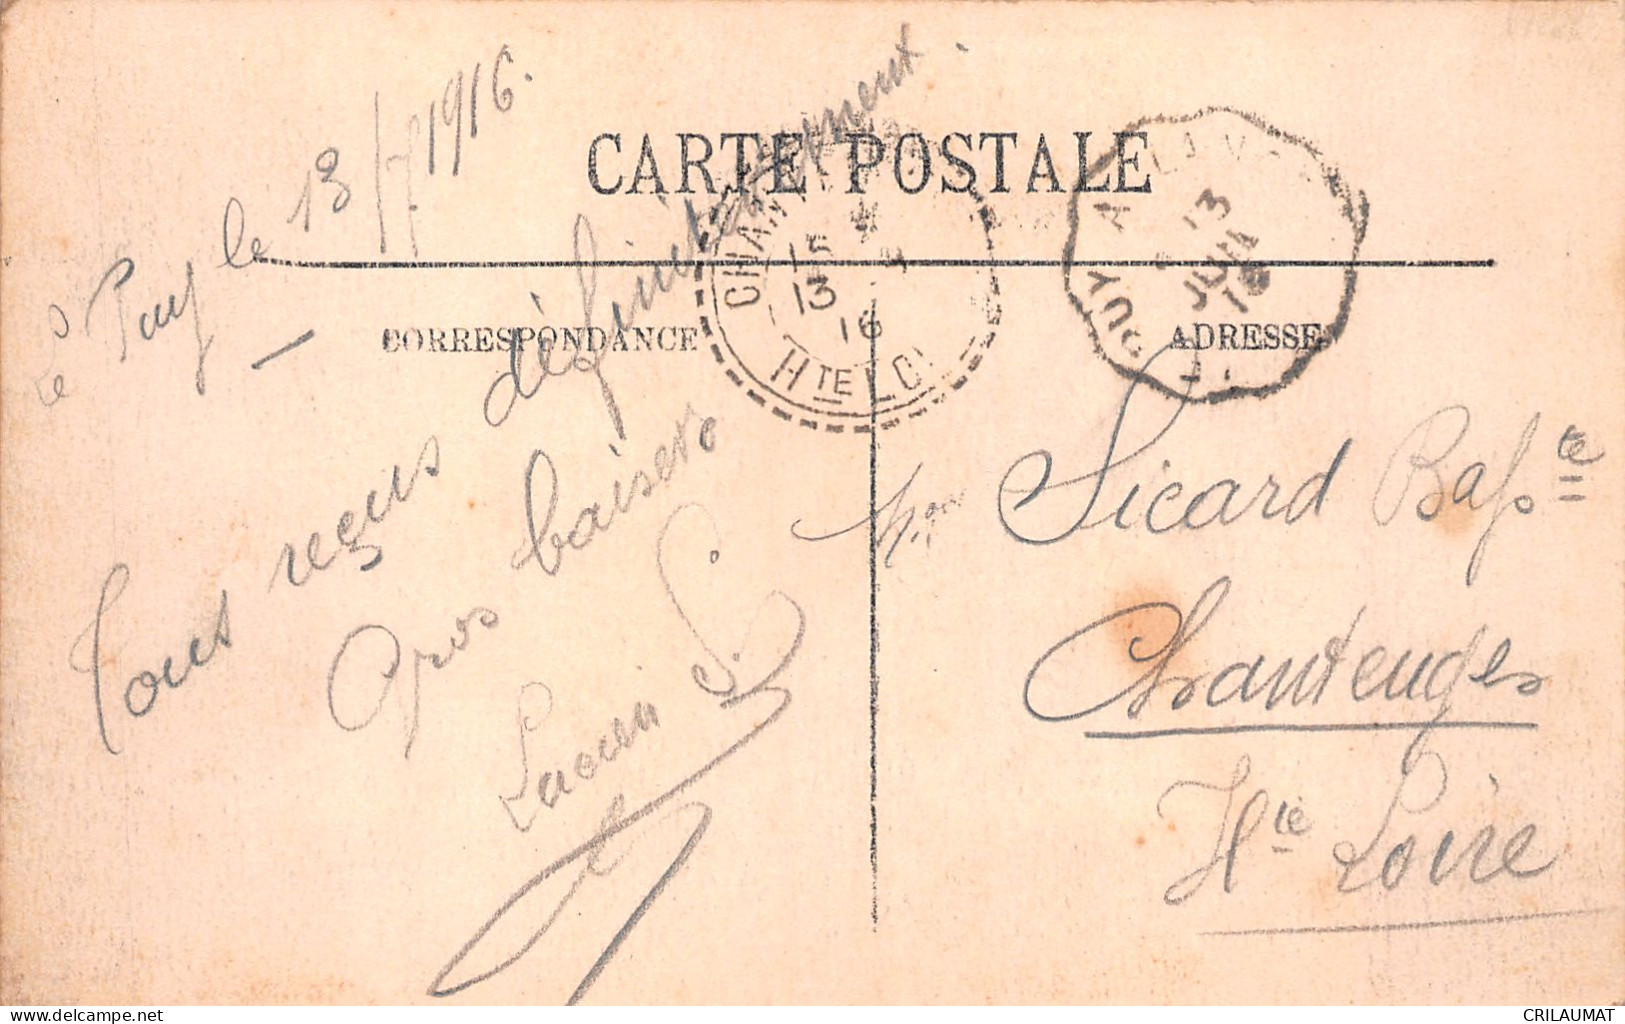 CARTE POSTALE
CORRESPONDANCE
ADRESSE
Le Puy le 13/7/1916.
Tous reçus définitivement.
Gros baisers
Lucien S.
CHAN
15
13
16
HTE LOI
PUY A LA V
13
JUIL
16
Mon Sicard Bapte
Chanteuges
Hte Loire
delcampe.net
CRILAUMAT